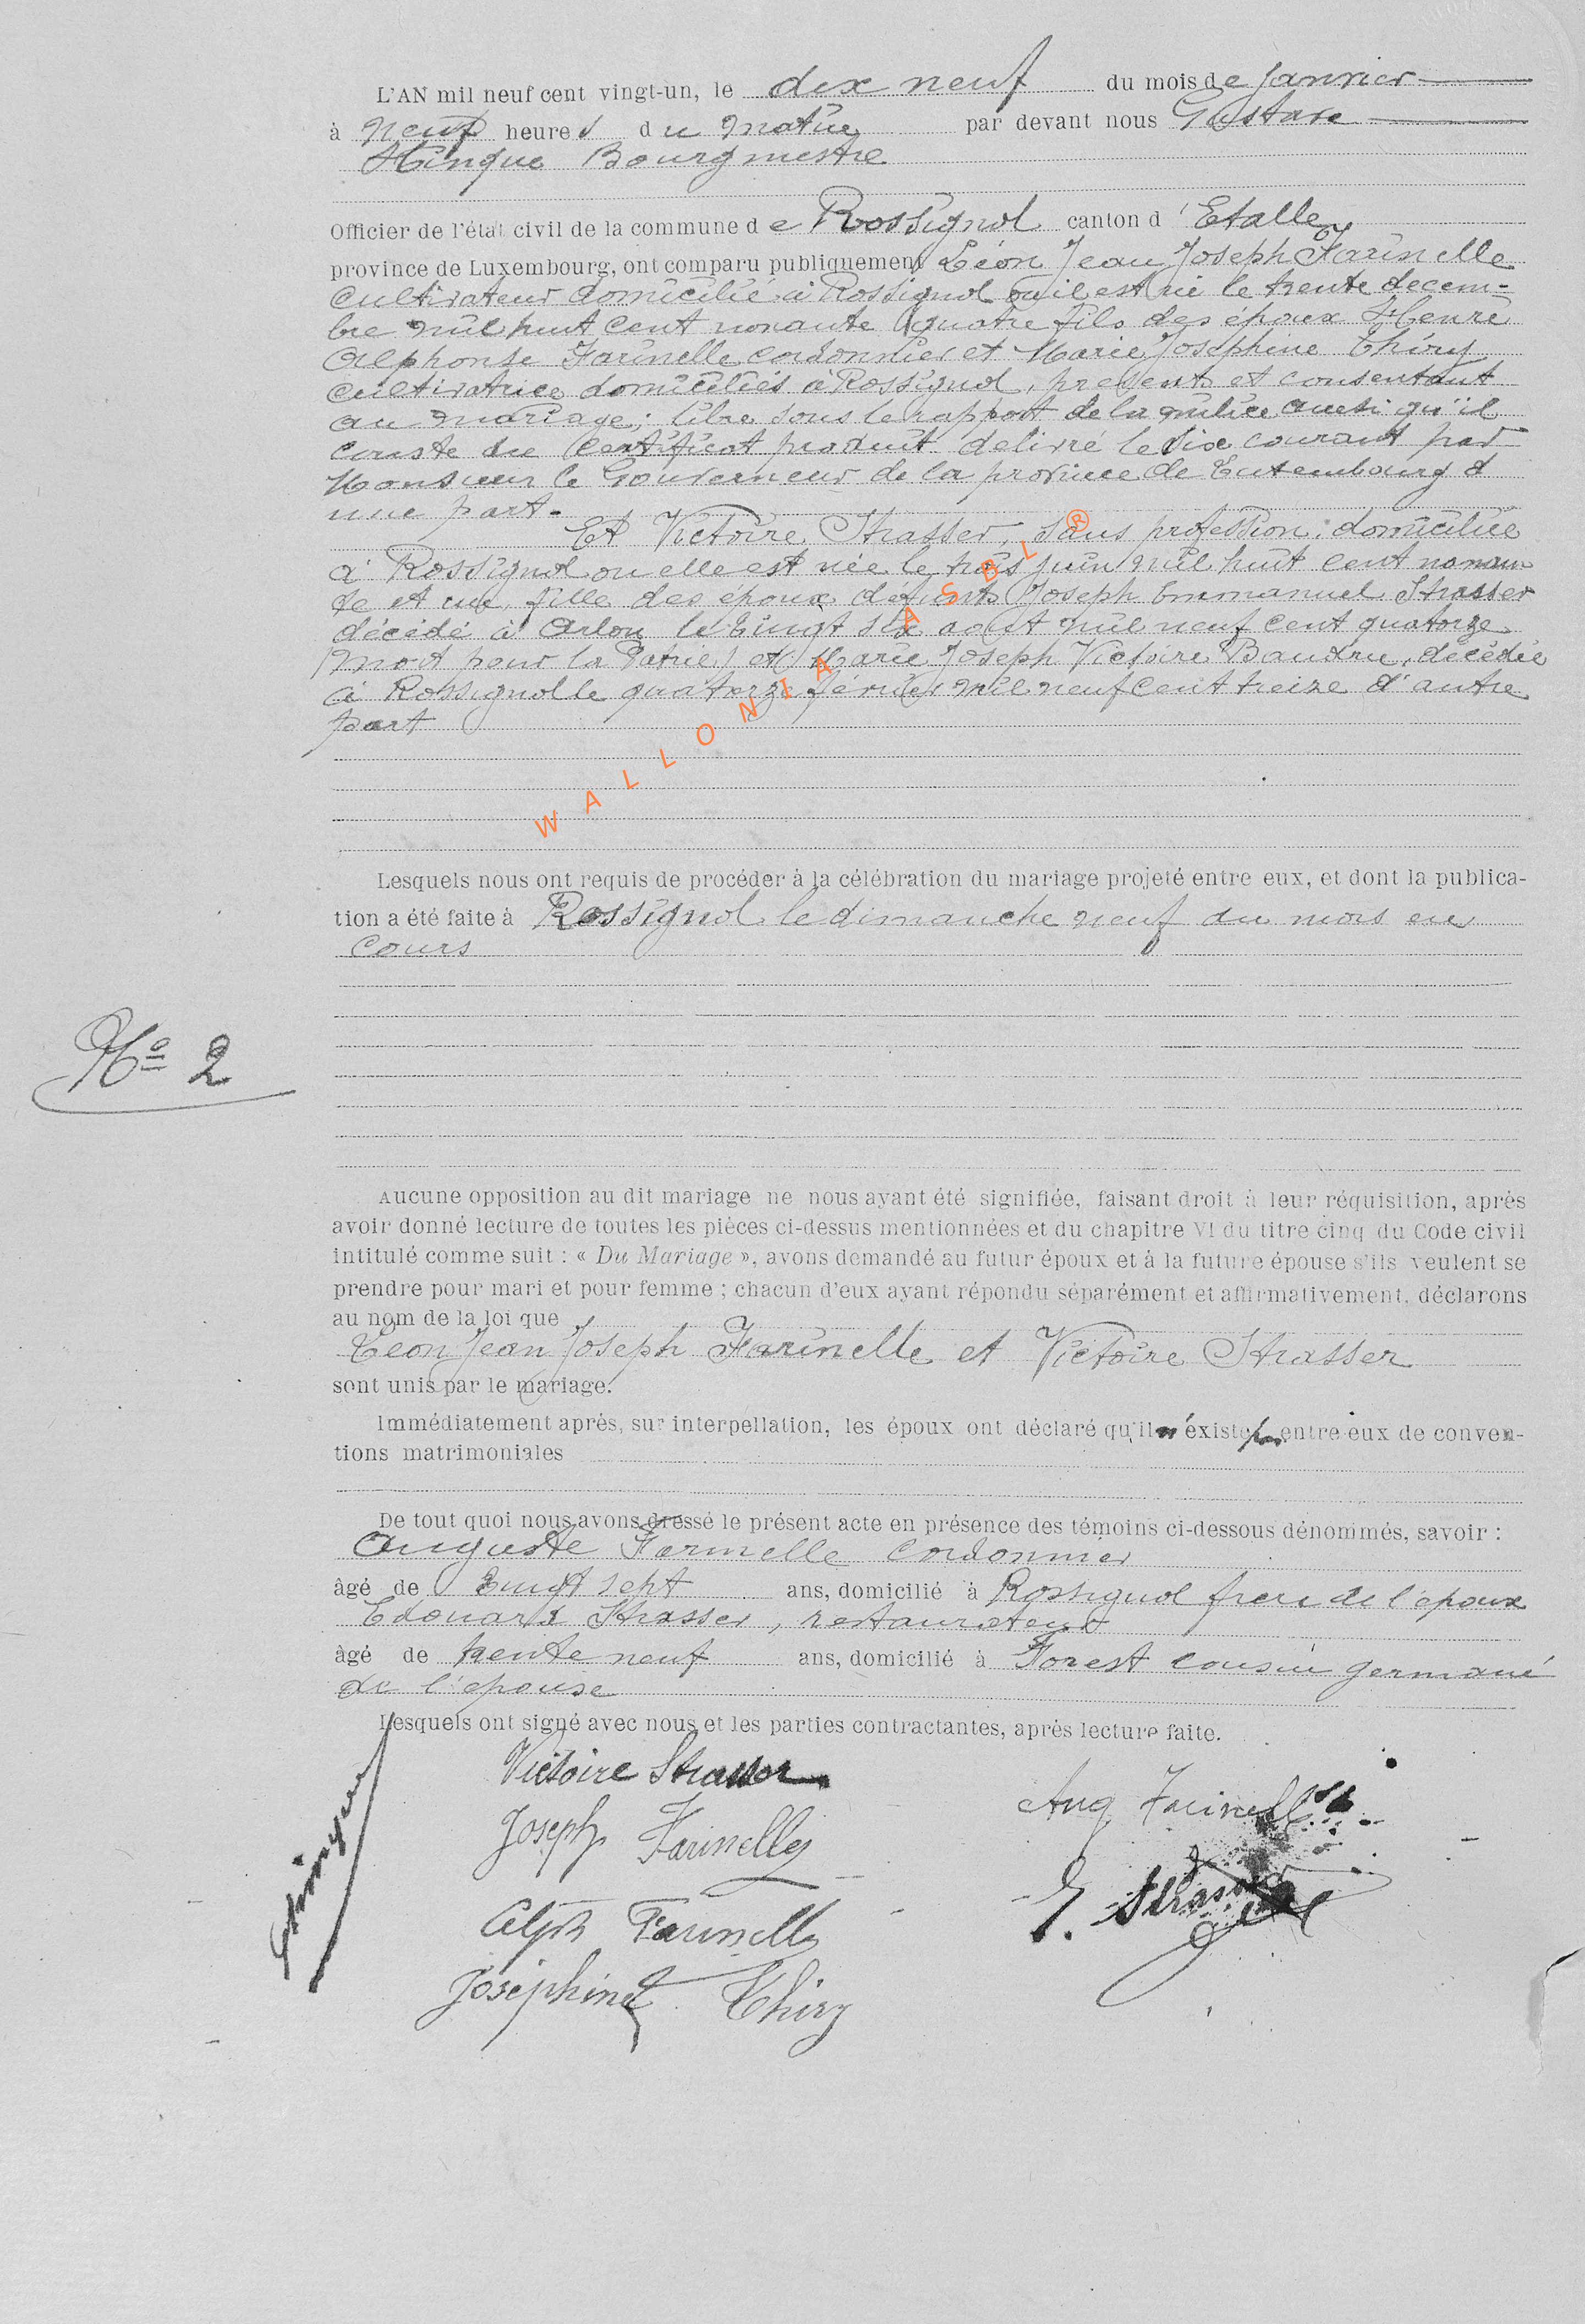 L'AN mil neuf cent vingt-un, le dix neuf du mois de Janvier
à neuf heures du matin par devant nous Gustave
Hinque Bourgmestre
Officier de l'état civil de la commune de Rossignol canton d'Etalle
province de Luxembourg, ont comparu publiquement Léon Jean Joseph Farinelle
cultivateur domicilié à Rossignol où il est né le trente decem-
bre mil huit cent nonante quatre fils des époux Henri
Alphonse Farinelle cordonnier et Marie Josephine Thiry
cultivatrice domiciliés à Rossignol, présents et consentant
au mariage; libre sous le rapport de la milice ainsi qu'il
conste du certificat produit délivré le six courant par
Monsieur le Gouverneur de la province de Luxembourg d
une part.
Et Victoire Strasser, sans profession, domiciliée
à Rossignol ou elle est née le trois juin mil huit cent nonan
te et un, fille des époux défunts Joseph Emmanuel Strasser
décédé à Arlon le vingt six aout mil neuf cent quatorze
(mort pour la Patrie) et Marie Joseph Victoire Baudru, décédée
à Rossignol le quatorze février mil neuf cent treize d'autre
part
WALLONIA ASBL ®
Lesquels nous ont requis de procéder à la célébration du mariage projeté entre eux, et dont la publica-
tion a été faite à Rossignol le dimanche neuf du mois en
cours
No 2
Aucune opposition au dit mariage ne nous ayant été signifiée, faisant droit à leur réquisition, après
avoir donné lecture de toutes les pièces ci-dessus mentionnées et du chapitre VI du titre cinq du Code civil
intitulé comme suit : « Du Mariage », avons demandé au futur époux et à la future épouse s'ils veulent se
prendre pour mari et pour femme ; chacun d'eux ayant répondu séparément et affirmativement, déclarons
au nom de la loi que
Léon Jean Joseph Farinelle et Victoire Strasser
sont unis par le mariage.
Immédiatement après, sur interpellation, les époux ont déclaré qu'il n'existe pas entre eux de conven-
tions matrimoniales
De tout quoi nous avons dressé le présent acte en présence des témoins ci-dessous dénommés, savoir :
Auguste Farinelle cordonnier
âgé de vingt sept ans, domicilié à Rossignol frere de l'époux
Edouard Strasser, restaurateur
âgé de trente neuf ans, domicilié à Forest cousin germain
de l'épouse
Lesquels ont signé avec nous et les parties contractantes, après lecture faite.
Victoire Strasser
Joseph Farinelle
Aug Farinelle
Alph Farinelle
E. Strasser
Joséphine Thiry